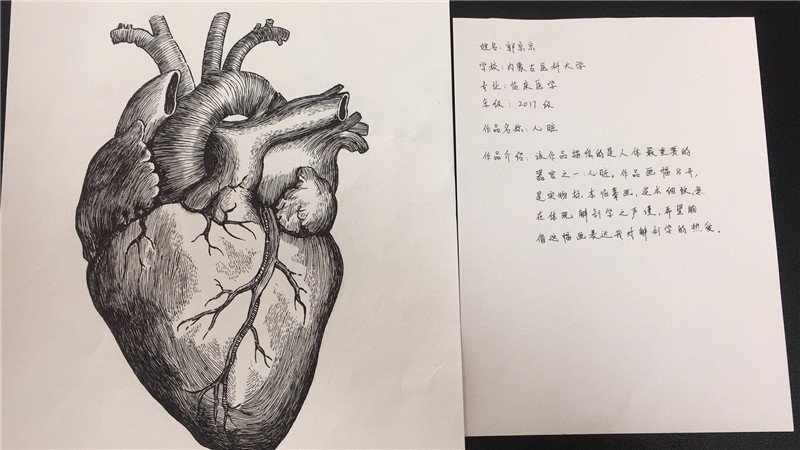 姓名：郭京京
学校：内蒙古医科大学
专业：临床医学
年级：2017级
作品名称：心脏
作品介绍：该作品描绘的是人体最重要的
器官之一：心脏。作品画幅8开，
是实物标本临摹画，追求细致，意
在体现解剖学之严谨，并望能
借这幅画表达我对解剖学的热爱。